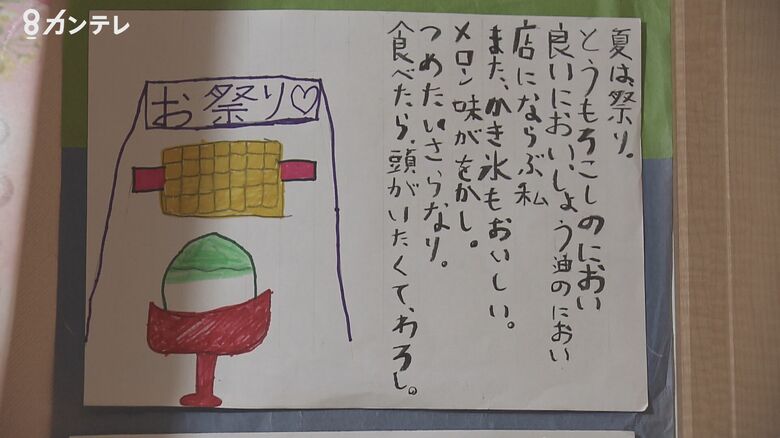 8カンテレ
お祭り♡
夏は、祭り。
とうもろこしのにおい
良いにおい、しょう油のにおい
店にならぶ私
また、かき氷もおいしい。
メロン味がをかし。
つめたいさらなり。
食べたら、頭がいたくて、わろし。